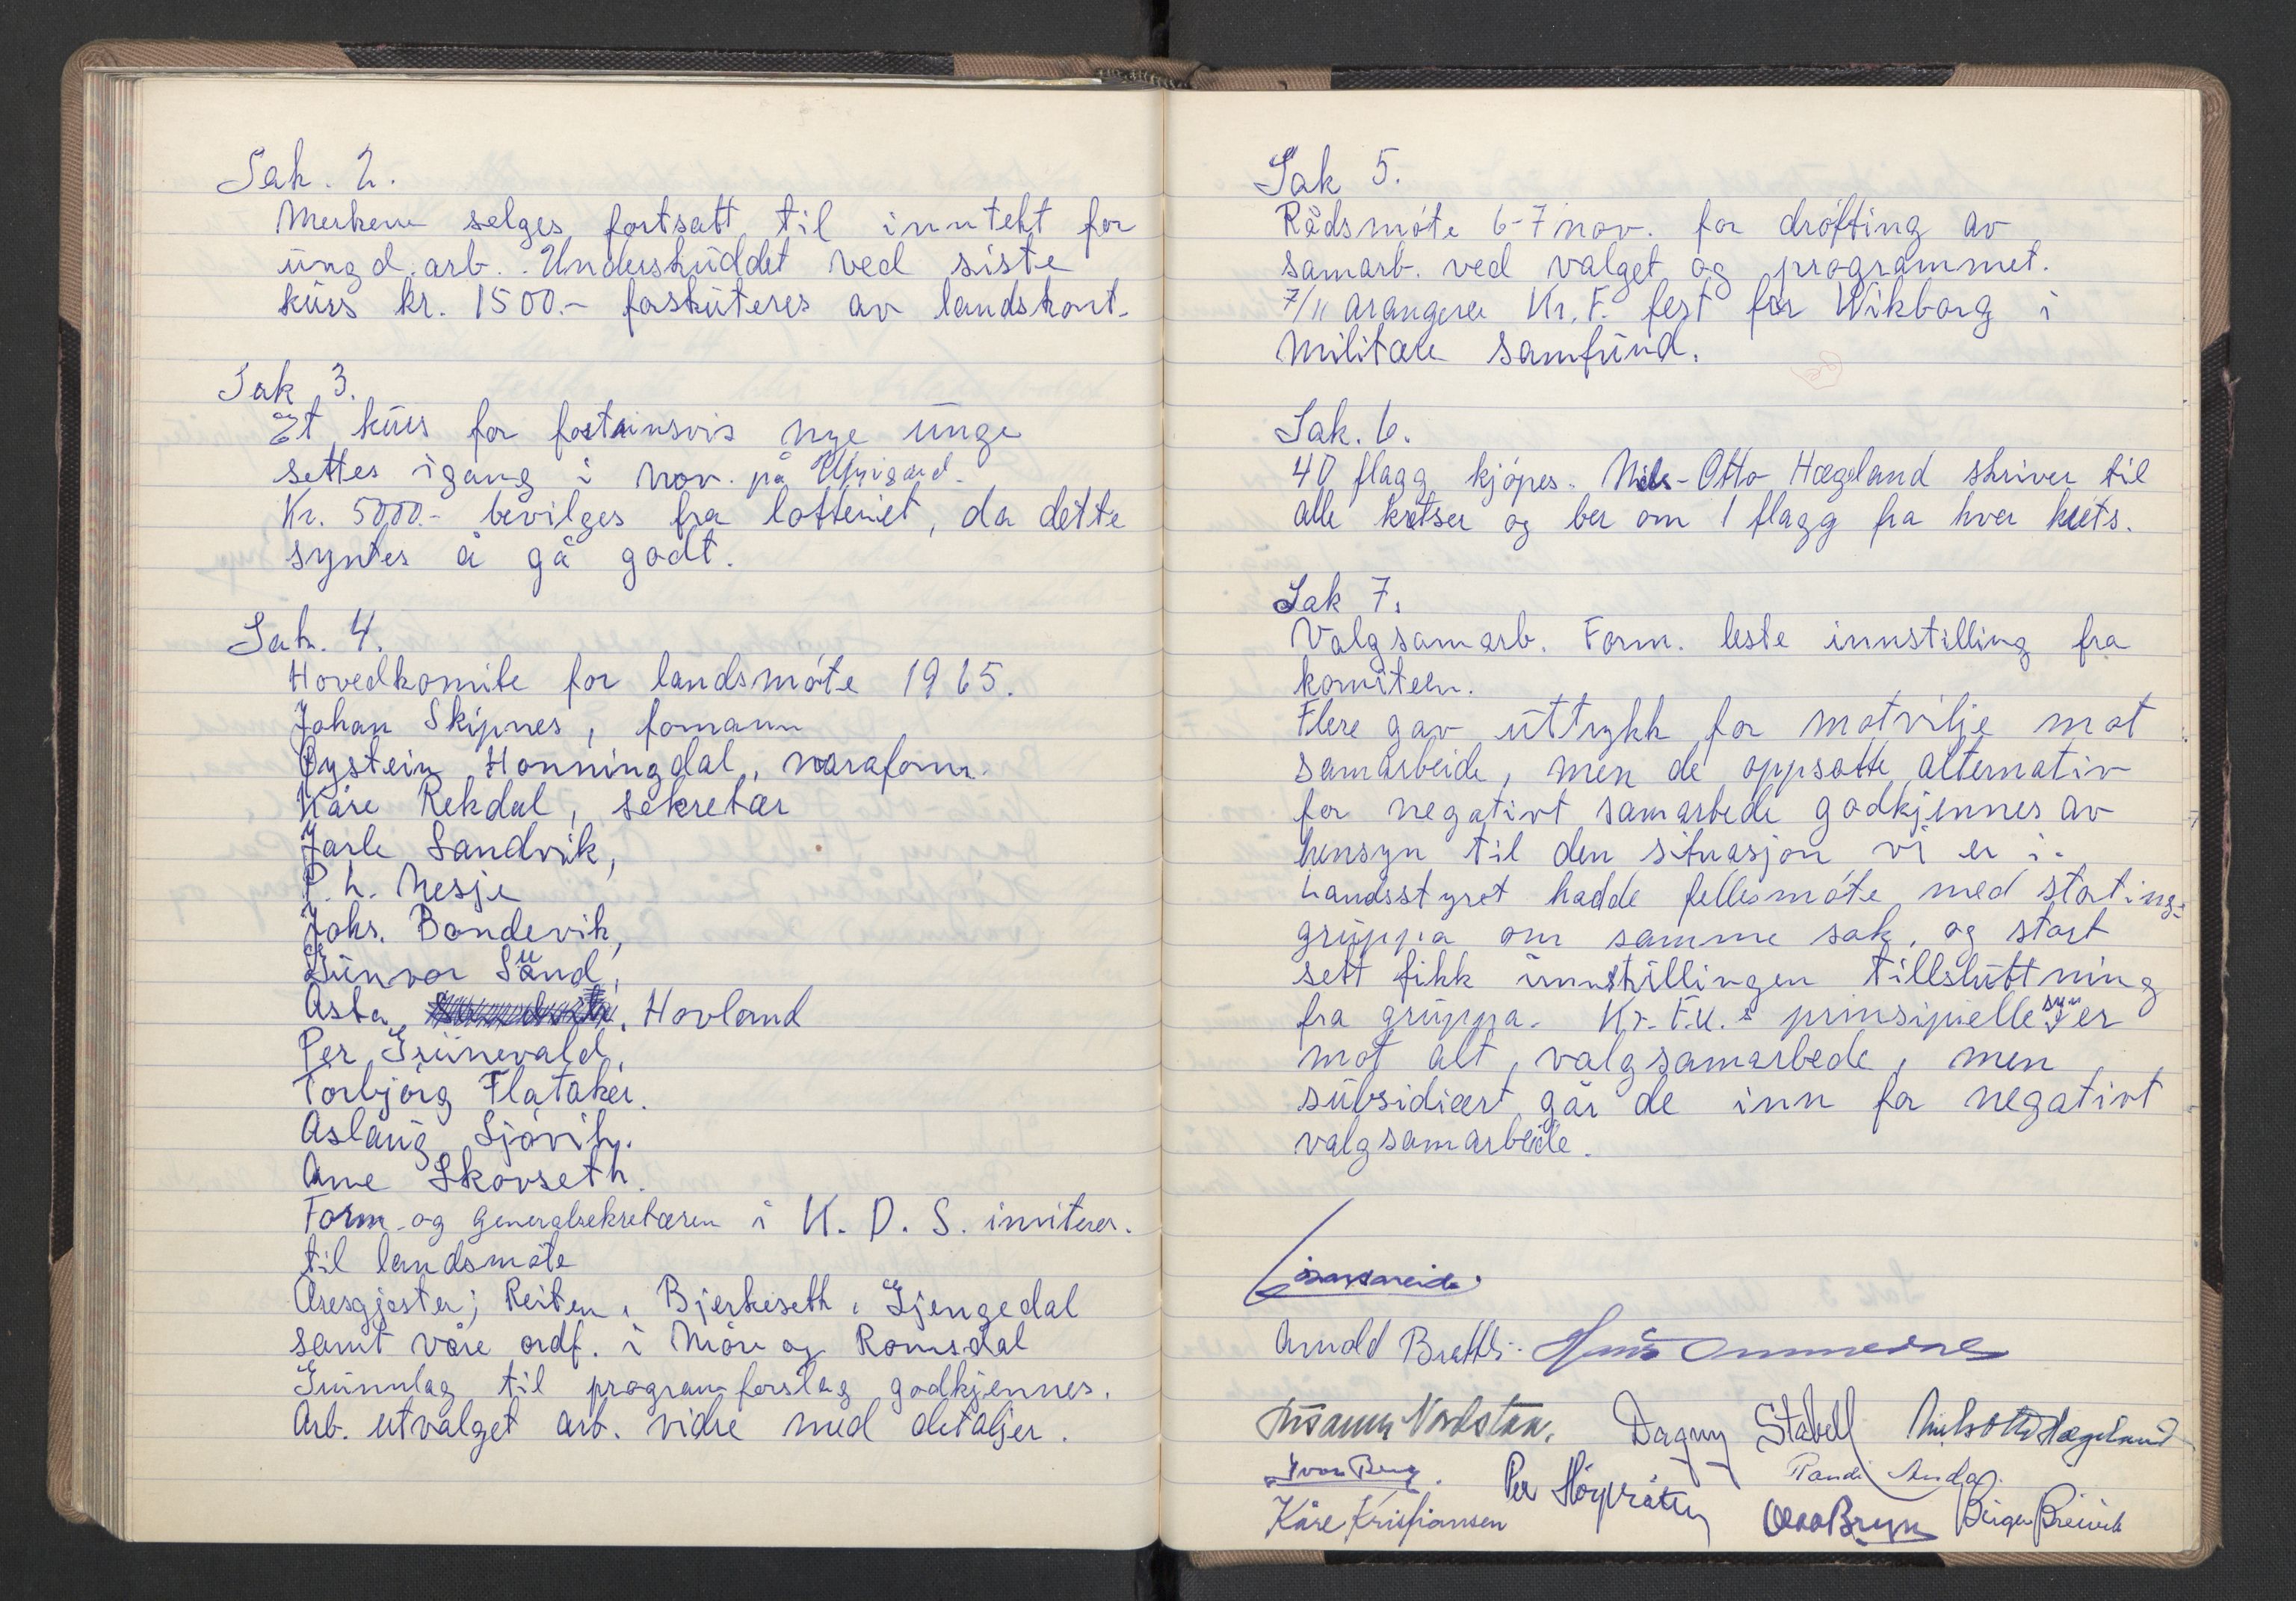 Sak. 2.
Merkene selges fortsatt til inntekt for
ungd. arb. Underskuddet ved siste
kurs kr. 1500.- forskuteres av landskont.
Sak 3.
Et kurs for fortrinsvis nye unge
settes igang i nov. på
Kr. 5000.- bevilges fra lotteriet, da dette
syntes å gå godt.
Sak. 4.
Hovedkomite for landsmøte 1965.
Johan Skipnes, formann
Øystein Honningdal, varaform.
Kåre Rekdal, sekretær
Jarle Sandvik,
P. L. Nesje
Johs. Bondevik,
Gunvor Sund,
Asta Hovland
Per Grünevald.
Torbjørg Flatøker.
Aslaug Sjøvik.
Arne Skovseth.
Form. og generalsekretæren i K. D. S. inviteres.
til landsmøte
Æresgjester; Reiten, Bjerkeseth, Gjengedal
samt våre ordf. i Møre og Romsdal
Grunnlag til programforslag godkjennes.
Arb. utvalget arb. vidre med detaljer.
Sak 5.
Rådsmøte 6-7 nov. for drøfting av
samarb. ved valget og programmet.
7/11 arangerer Kr. F. fest for Wikborg i
Militære samfund.
Sak. 6.
40 flagg kjøpes. Nils-Otto Hægeland skriver til
alle kretser og ber om 1 flagg fra hver krets.
Sak 7.
Valgsamarb. Form. leste innstilling fra
komiteen.
Flere gav uttrykk for motvilje mot
samarbeide, men de oppsatte alternativ
for negativt samarbede godkjennes av
hensyn til den situasjon vi er i.
Landsstyret hadde fellesmøte med stortings-
gruppa om samme sak, og stort
sett fikk innstillingen tillslüttning
fra gruppa. Kr. F.U.s prinsipielle syn er
mot alt valgsamarbede, men
subsidiært går de inn for negativt
valgsamarbeide.
Arnold Brattli. Hans Ommedal
Susanna Nordstrø. Dagny Stabell Nils Otto Hægeland
Ivar Berg. Per Høybråten Randi Anda.
Kåre Kristiansen Olav Bryn Birger Breivik